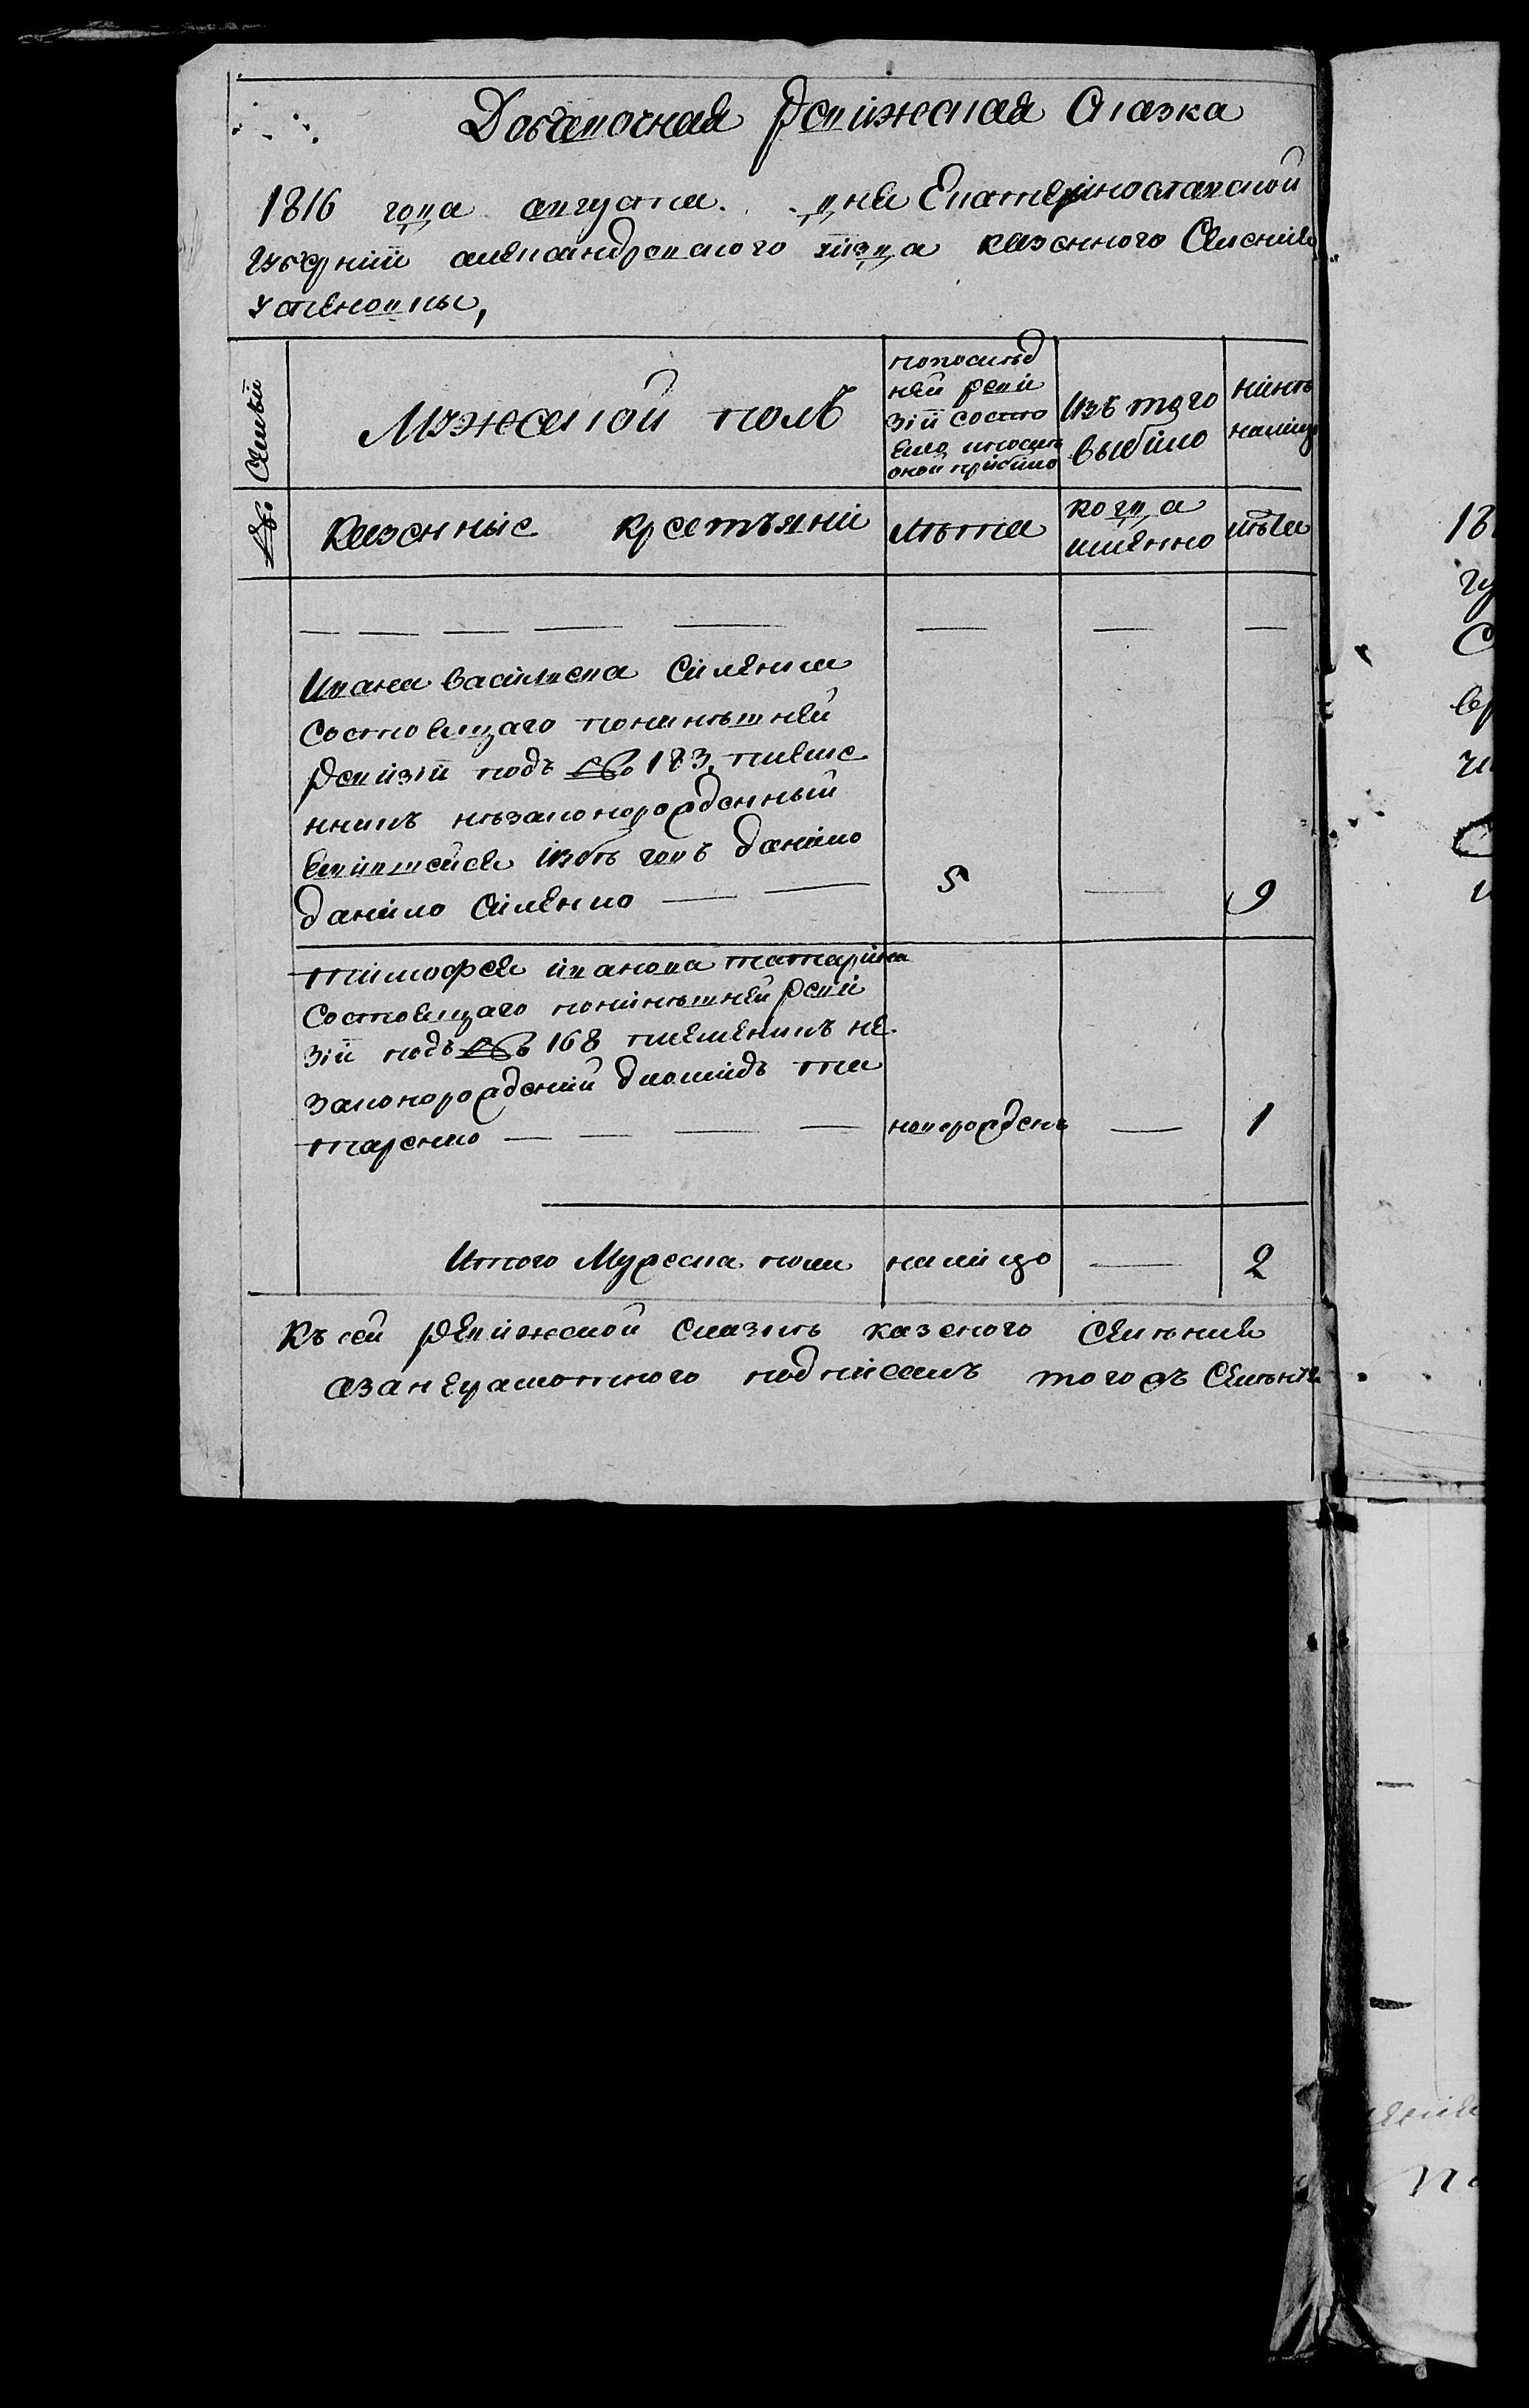 Добавочная Ревижская Сказка
1816 года августа. дня Екатеринославской
губерніи александровского уезда казенного Селения
успеновки,
№ Семьи
Мужеской полъ
попослѣд
ней реви
зіи состо
яло ипослѣ
оной прибыло
Изъ того
выбыло
нинѣ
налицо
казенные крестьяни
лѣта
когда
именно
лѣта
Ивана васильева Силенка
состоящаго понинѣшней
ревизіи подъ № 183, племе
нникъ нѣзаконорожденный
явившейся
данило Силенко
5
9
тимофея иванова татарина
состоящаго понинѣшней реви
зіи подъ № 168 племеникъ не
законорожденій диомидъ та
таренко
новорожденъ
1
Итого Мужеска пола налицо
2
Къ сей ревижской сказкѣ казеного Селѣния
азанеграмотного подписалъ тогожъ Селѣния